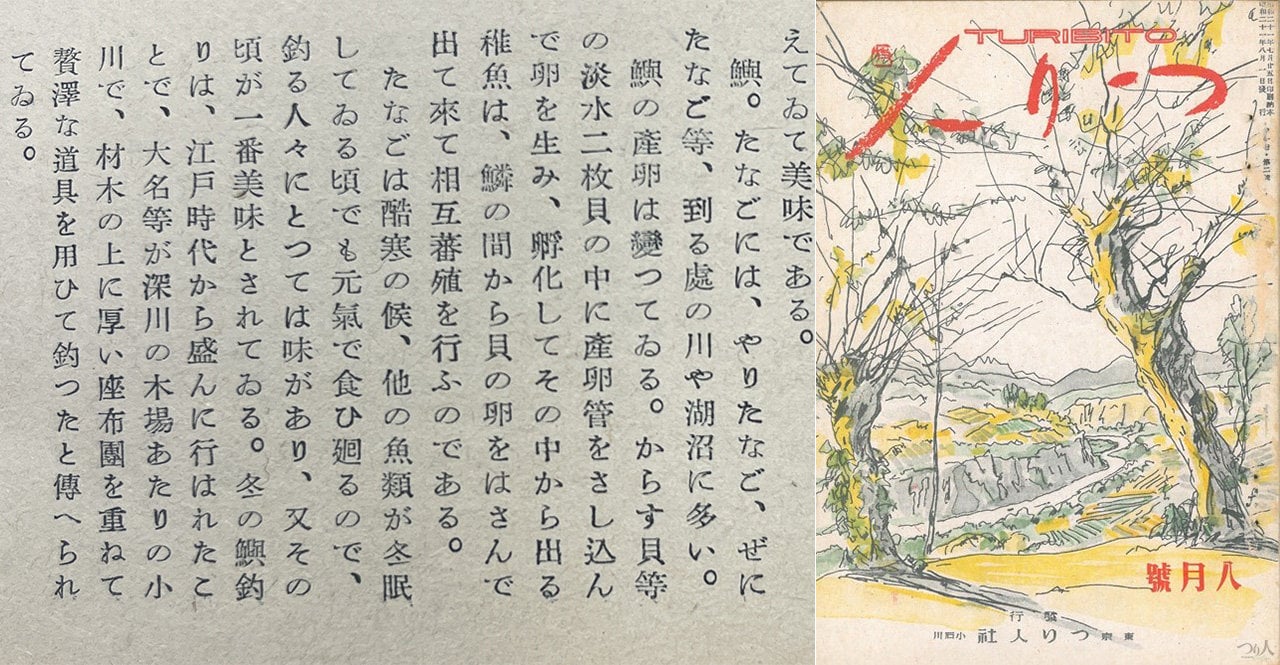 えてゐて美味である。
鱮。たなごには、やりたなご、ぜに
たなご等、到る處の川や湖沼に多い。
鱮の產卵は變つてゐる。からす貝等
の淡水二枚貝の中に產卵管をさし込ん
で卵を生み、孵化してその中から出る
稚魚は、鱗の間から貝の卵をはさんで
出て來て相互蕃殖を行ふのである。
たなごは酷寒の候、他の魚類が冬眠
してゐる頃でも元氣で食ひ廻るので、
釣る人々にとつては味があり、又その
頃が一番美味とされてゐる。冬の鱮釣
りは、江戸時代から盛んに行はれたこ
とで、大名等が深川の木場あたりの小
川で、材木の上に厚い座布團を重ねて
贅澤な道具を用ひて釣つたと傳へられ
てゐる。
TURIBITO
つり人
昭和二十一年七月廿五日印刷納本
昭和二十一年八月一日發行
八月號
發行
東京 小石川 つり人社
つり人